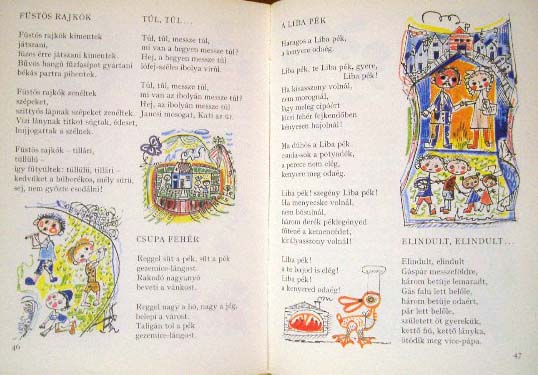 FÜSTÖS RAJKÓK
Füstös rajkók kimentek
játszani,
füzes érre játszani kimentek.
Bűvös hangú fűzfasípot gyártani
békás partra pihentek.
Füstös rajkók zenéltek
szépeket,
szittyós lápnak szépeket zenéltek.
Vízi lánynak titkot súgtak, édeset,
hujjogattak a szélnek.
Füstös rajkók – tillári,
tüllülü –
így fütyültek: tüllülü, tillári –
kedvüket a bölömbikás, mély sűrű,
sej, nem győzte csodálni!
46
TÚL, TÚL...
Túl, túl, messze túl,
mi van a hegyen messze túl?
Hej, a hegyen messze túl
lófej-széles ibolya virul.
Túl, túl, messze túl,
mi van az ibolyán messze túl?
Hej, az ibolyán messze túl
Jancsi mosogat, Kati az úr.
CSUPA FEHÉR
Reggel süt a pék, süt a pék
gezemice-lángost.
Rakodó nagyanyó
beveti a vánkost.
Reggel nagy a hó, nagy a jég,
belepi a várost.
Taligán tol a pék
gezemice-lángost.
A LIBA PÉK
Haragos a Liba pék,
a kenyere odaég.
Liba pék, te Liba pék, gyere,
Liba pék!
Ha kisasszony volnál,
nem morognál,
lágy meleg cipóért
kicsi fehér fejkendőben
kényesen hajolnál!
Ha dühös a Liba pék,
csuda-sok a potyadék,
a perece nem elég,
kenyere meg odaég.
Liba pék! szegény Liba pék!
Ha menyecske volnál,
nem búsulnál,
három derék péklegényed
fűtené a kemencédet,
királyasszony volnál!
Liba pék!
a te bajod is elég!
Liba pék!
a kenyered odaég!
ELINDULT, ELINDULT...
Elindult, elindult
Gáspár messzeföldre,
három betűje lemaradt,
Gás falu lett belőle,
három betűje odaért,
pár lett belőle,
született öt gyerekük,
kettő fiú, kettő lányka,
ötödik meg vice-pápa.
47